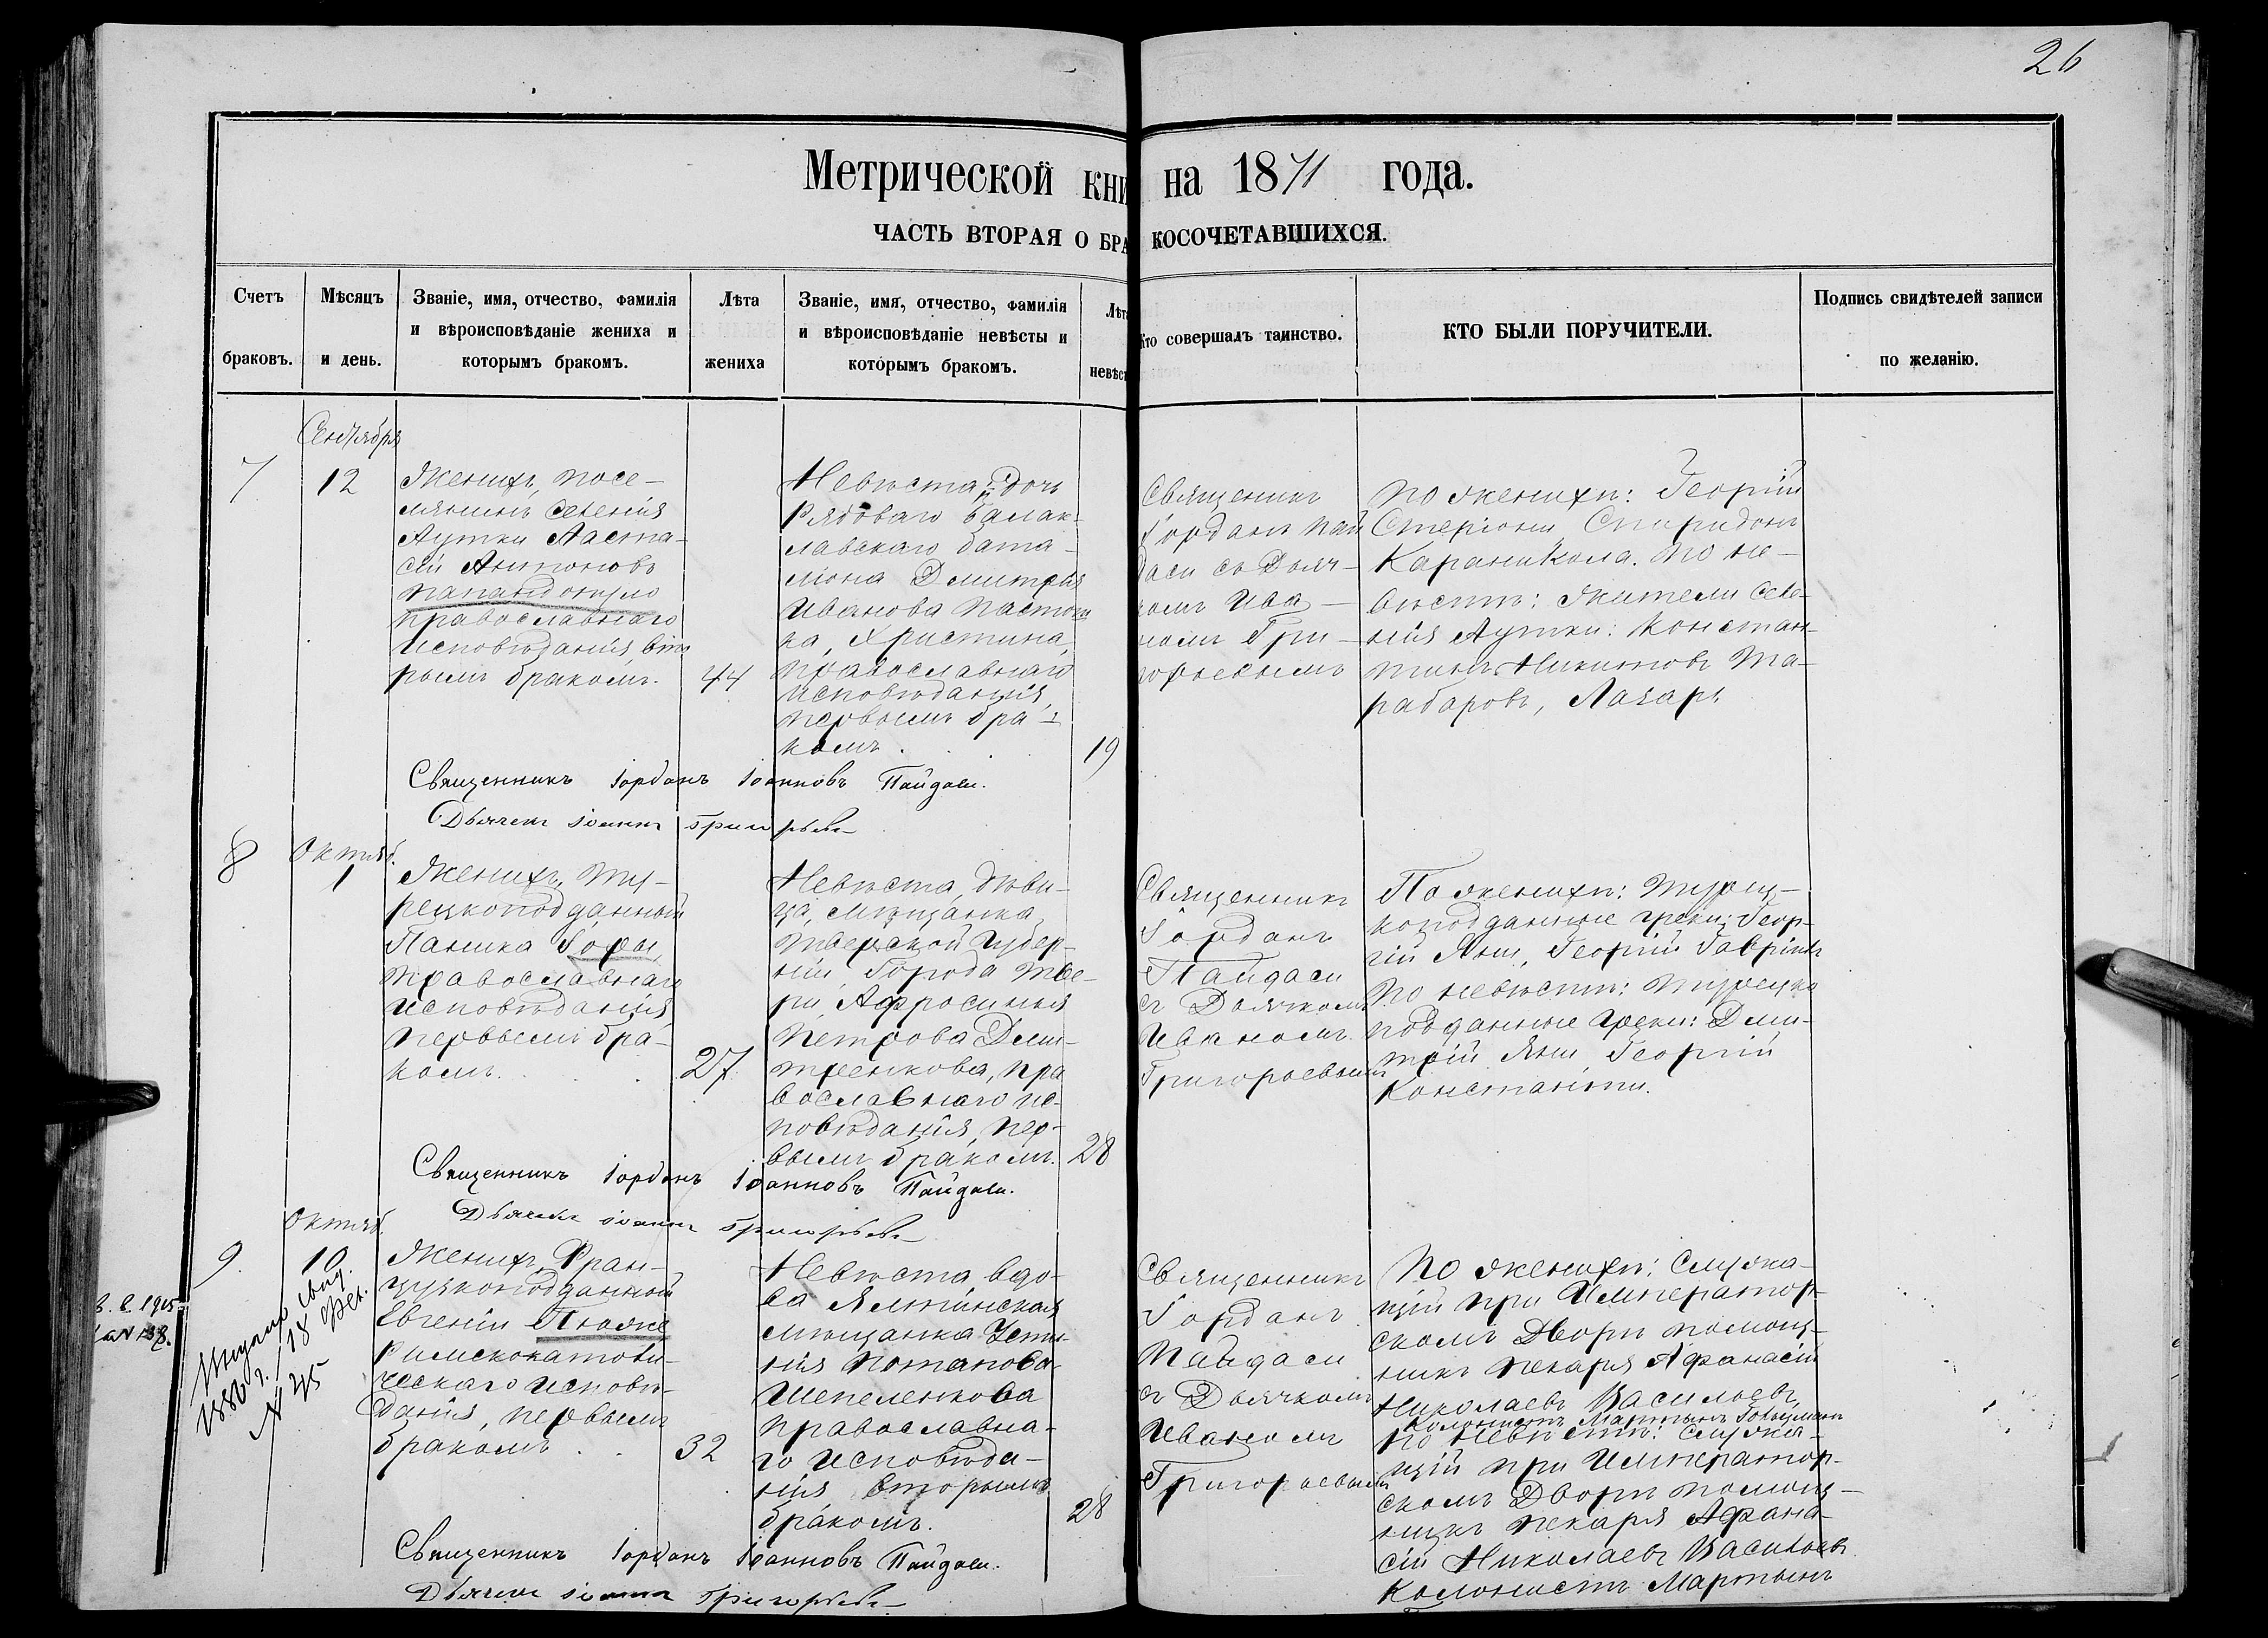 26
Метрической кни на 1871 года.
ЧАСТЬ ВТОРАЯ О БРА КОСОЧЕТАВШИХСЯ.
Счетъ браковъ.
Мѣсяцъ и день.
Званіе, имя, отчество, фамилія
и вѣроисповѣданіе жениха и
которымъ бракомъ.
Лѣта
жениха
Званіе, имя, отчество, фамилія
и вѣроисповѣданіе невѣсты и
которымъ бракомъ.
Лѣта
невѣст
Кто совершалъ таинство.
КТО БЫЛИ ПОРУЧИТЕЛИ.
Подпись свидѣтелей записи
по желанію.
7
Сентября
12
Женихъ, посе-
лянинъ селенія
Аутки
Антоновъ
православнаго
исповѣданія вто
рымъ бракомъ.
44
Невѣста, дочь
Рядоваго Балак-
лавскаго бата-
ліона Дмитрія
Иванова
Христина,
православнаго
исповѣданія,
первымъ бра-
комъ.
19
Священникъ
Іорданъ Пай
даси съ Дьяч-
комъ Ива-
номъ Гри-
горьевымъ
По женихѣ: Георгій
Спиридонъ
Караникола. По не-
вѣстѣ: жители селе-
нія Аутки: Констан-
тинъ Никитовъ Та-
рабаровъ, Лазарь
Священникъ Іорданъ Іоанновъ Пайдаси.
Дьячекъ Іоаннъ Григорьевъ
8
Октяб.
1
Женихъ, Ту-
рецкоподданный
Паника
Православнаго
исповѣданія
первымъ бра-
комъ.
27
Невѣста, дѣви-
ца, мѣщанка
Тверской Губер-
ніи, Города Тве-
ри, Афросинья
Петрова Дми-
тренкова, пра
вославнаго ис-
повѣданія, пер-
вымъ бракомъ.
28
Священникъ
Іорданъ
Пайдаси
съ Дьячкомъ
Иваномъ
Григорьевымъ
По женихѣ: Турец-
коподданные греки: Геор-
гій Яни, Георгій
По невѣстѣ: Турецко
подданные Греки: Дми-
трій Яни, Георгій
Константи.
Священникъ Іорданъ Іоанновъ Пайдаси.
Дьячекъ Іоаннъ Григорьевъ
9.
Октяб.
10
Женихъ, Фран-
цузкоподданный
Евгеній
Римскокатоли-
ческаго исповѣ-
данія, первымъ
бракомъ
32
Невѣста, вдо-
ва Ялтинская
мѣщанка
Потапова
Шепеленкова
православна-
го исповѣда-
нія вторымъ
бракомъ.
28
Священникъ
Іорданъ
Пайдаси
съ Дьячкомъ
Иваномъ
Григорьевымъ
По женихѣ: Служа-
щій при Император-
скомъ Дворѣ помощ-
никъ пекаря Афанасій
Николаевъ Васильевъ,
Колонистъ Мартынъ
по невѣстѣ: Служа-
щій при Император-
скомъ Дворѣ помощ-
никъ пекаря Афана-
сій Николаевъ Васильевъ
Колонистъ Мартынъ
Священникъ Іорданъ Іоанновъ Пайдаси.
Дьячекъ Іоаннъ Григорьевъ